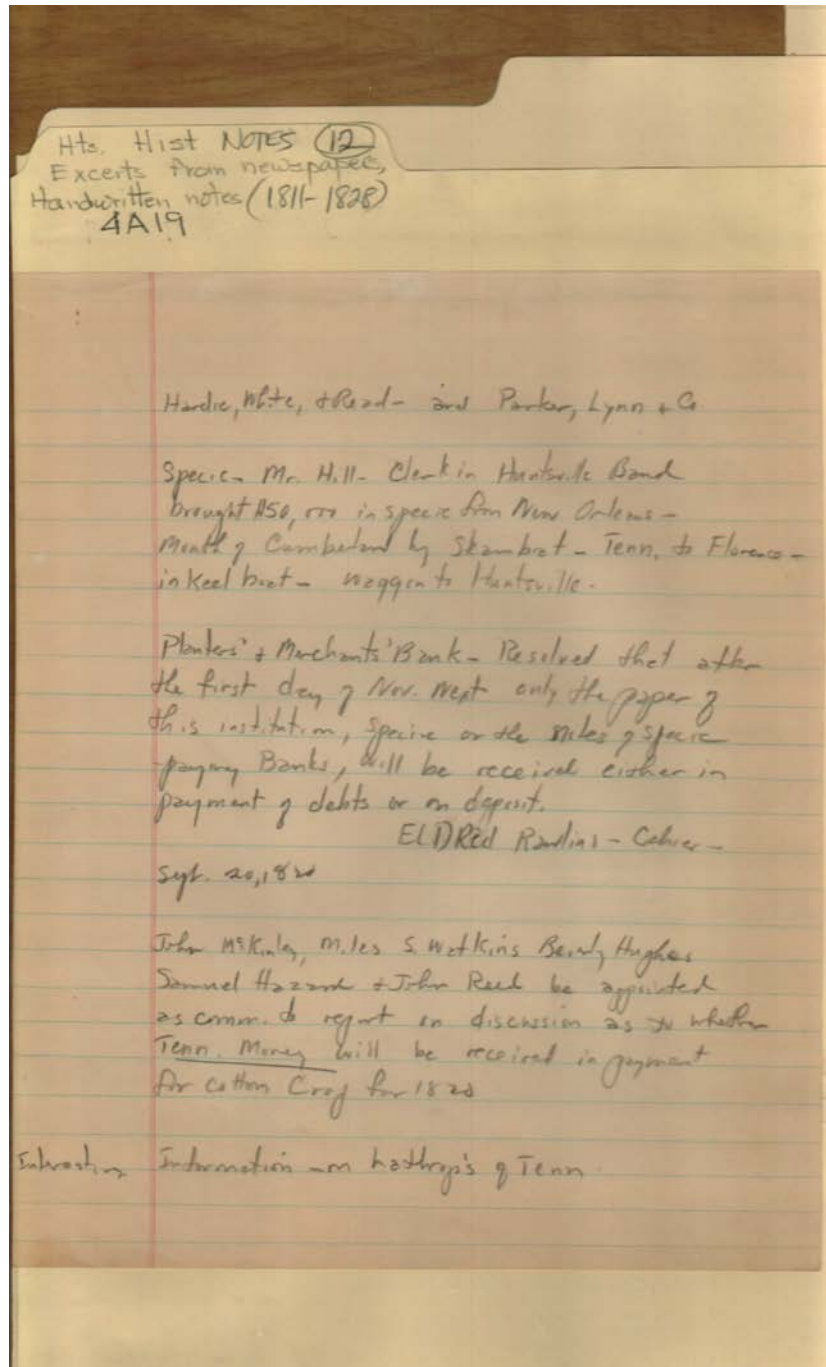 Hts. Hist NOTES 12
Excerts from newspapers,
Handwritten notes (1811-1828)
4A19
Hardie, White, & Read - and Parker, Lynn & Co
Specie - Mr. Hill - Clerk in Huntsville Band
brought $50,000 in specie from New Orleans -
Mouth of Cumberland by Steamboat - Tenn. to Florence -
in Keel boat - waggon to Huntsville.
Planters' & Merchants' Bank - Resolved that after
the first day of Nov. next only the paper of
this institution, Specie or the notes of specie
paying Banks, will be received either in
payment of debts or on deposit.
ELDRed Rawlins - Cahier -
Sept. 20, 1820
John McKinley, Miles S. Watkins Beverly Hughes
Samuel Hazard & John Read be appointed
as comm. to report on discussion as to whether
Tenn. Money will be received in payment
for cotton Crop for 1820
Interesting Information - on Lathrop's of Tenn